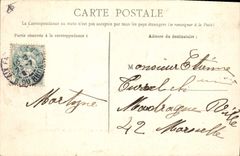 CARTE POSTALE
La Correspondance au recto n'est pas acceptée par tous les pays étrangers (se renseigner à la Poste)
Partie réservée à la correspondance
Adresse du destinataire
Monsieur Etienne
Mortagne
Madrague Ville
42 Marseille